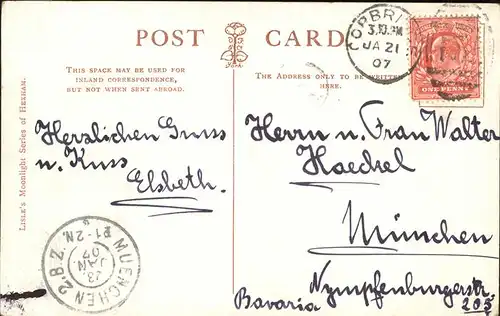 POST CARD
THIS SPACE MAY BE USED FOR
INLAND CORRESPONDENCE,
BUT NOT WHEN SENT ABROAD.
THE ADDRESS ONLY TO BE WRITTEN
HERE.
3.10 PM
JA 21
07
ONE PENNY
Lisle's Moonlight Series of Hexham.
Herzlichen Gruss
u. Kuss
Elsbeth.
Herrn u. Frau Walter
Haeckel
München
Nymphenburgerstr.
205
Bavaria
MUENCHEN 2.B.Z.
23
JAN
07
1-2N.